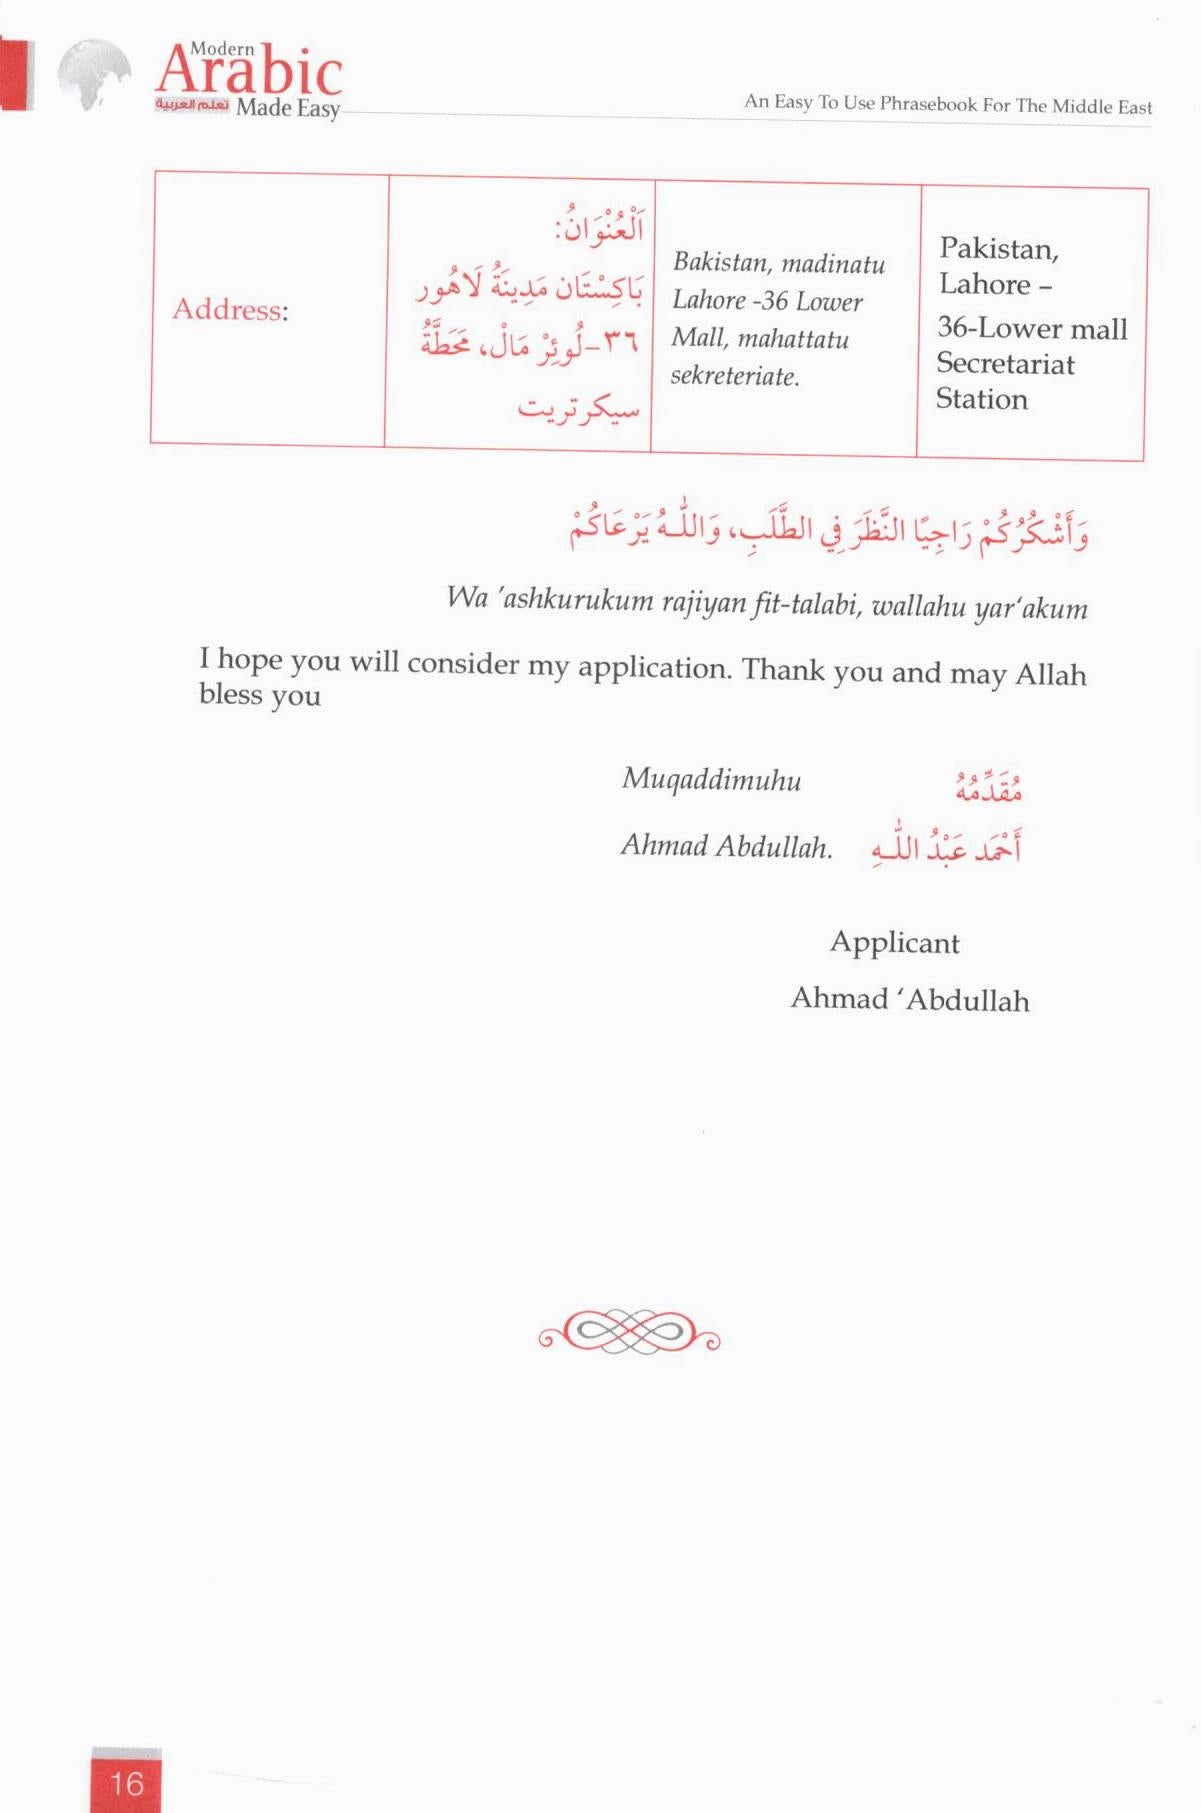 Modern
Arabic
تعلم العربية Made Easy
An Easy To Use Phrasebook For The Middle East
Address:
اَلْعُنْوَانُ:
بَاكِسْتَان مَدِينَةُ لَاهُور
٣٦-لُوئِرْ مَالْ، مَحَطَّةُ
سيكرتريت
Bakistan, madinatu
Lahore -36 Lower
Mall, mahattatu
sekreteriate.
Pakistan,
Lahore –
36-Lower mall
Secretariat
Station
وَأَشْكُرُكُمْ رَاجِيًا النَّظَرَ فِي الطَّلَبِ، وَاللّٰهُ يَرْعَاكُمْ
Wa 'ashkurukum rajiyan fit-talabi, wallahu yar‘akum
I hope you will consider my application. Thank you and may Allah
bless you
Muqaddimuhu مُقَدِّمُهُ
Ahmad Abdullah. أَحْمَد عَبْدُ اللّٰهِ
Applicant
Ahmad ‘Abdullah
16